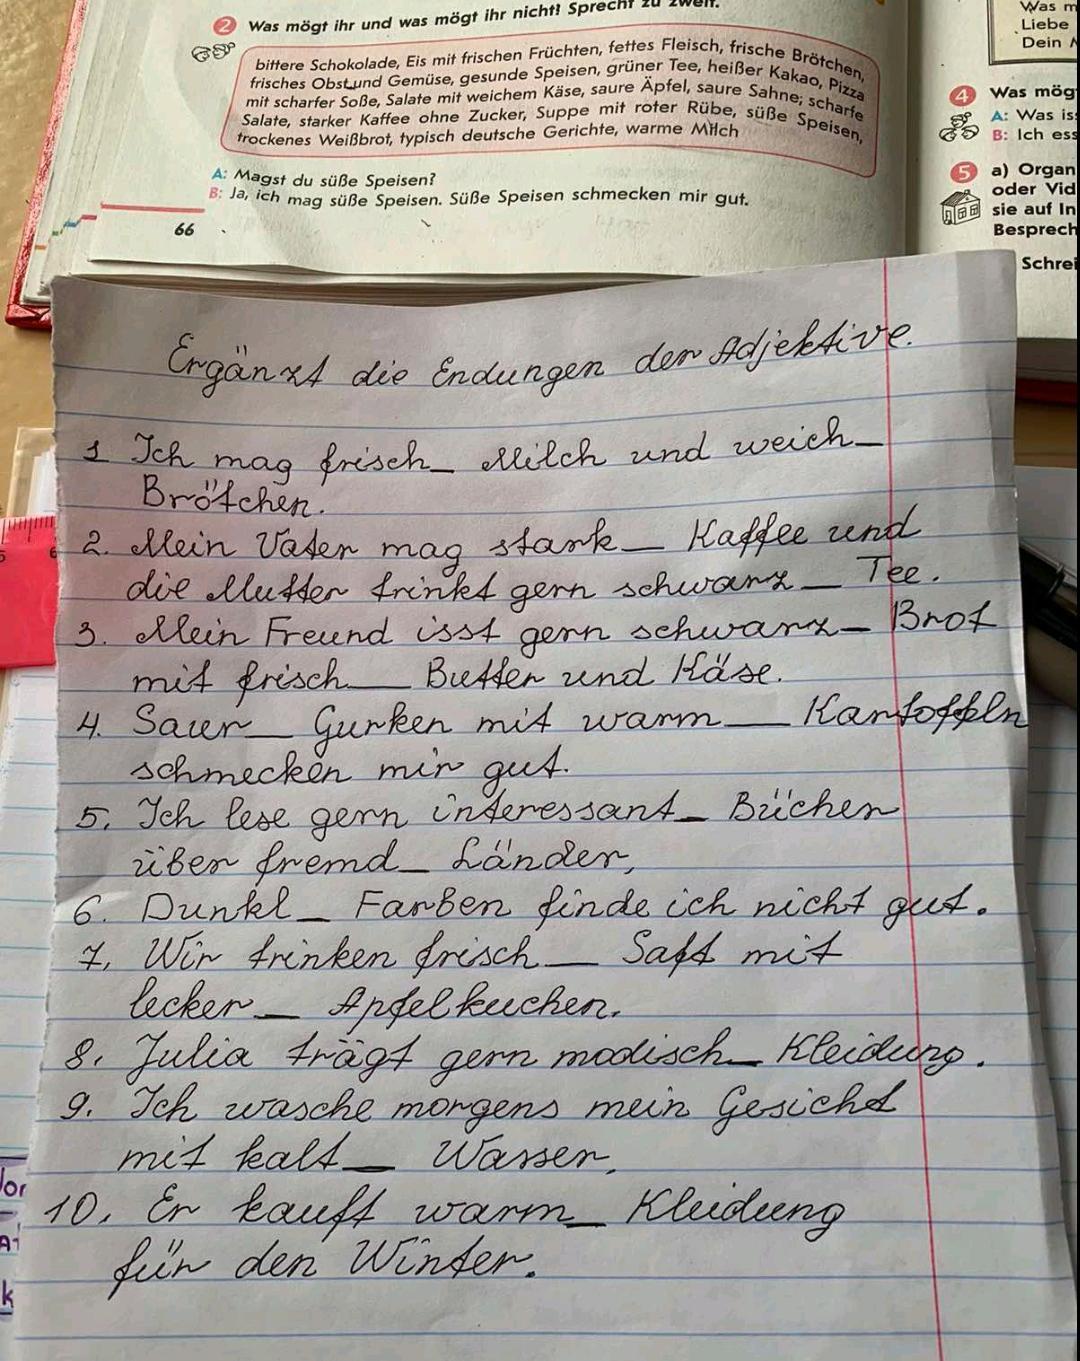 2 Was mögt ihr und was mögt ihr nicht? Sprecht zu zweit.
bittere Schokolade, Eis mit frischen Früchten, fettes Fleisch, frische Brötchen,
frisches Obst und Gemüse, gesunde Speisen, grüner Tee, heißer Kakao, Pizza
mit scharfer Soße, Salate mit weichem Käse, saure Äpfel, saure Sahne, scharfe
Salate, starker Kaffee ohne Zucker, Suppe mit roter Rübe, süße Speisen,
trockenes Weißbrot, typisch deutsche Gerichte, warme Milch
A: Magst du süße Speisen?
B: Ja, ich mag süße Speisen. Süße Speisen schmecken mir gut.
66
Was m
Liebe
Dein
4 Was mög
A: Was is
B: Ich ess
5 a) Organ
oder Vid
sie auf In
Besprech
Schrei
Ergänzt die Endungen der Adjektive.
1 Ich mag frisch_ Milch und weich_
Brötchen.
2. Mein Vater mag stark_ Kaffee und
die Mutter trinkt gern schwarz_ Tee.
3. Mein Freund isst gern schwarz_ Brot
mit frisch_ Butter und Käse.
4. Sauer_ Gurken mit warm_ Kartoffeln
schmecken mir gut.
5. Ich lese gern interessant_ Bücher
über fremd_ Länder,
6. Dunkl_ Farben finde ich nicht gut.
7. Wir trinken frisch_ Saft mit
lecker_ Apfelkuchen.
8. Julia trägt gern modisch_ Kleidung.
9. Ich wasche morgens mein Gesicht
mit kalt_ Wasser.
10. Er kauft warm_ Kleidung
für den Winter.